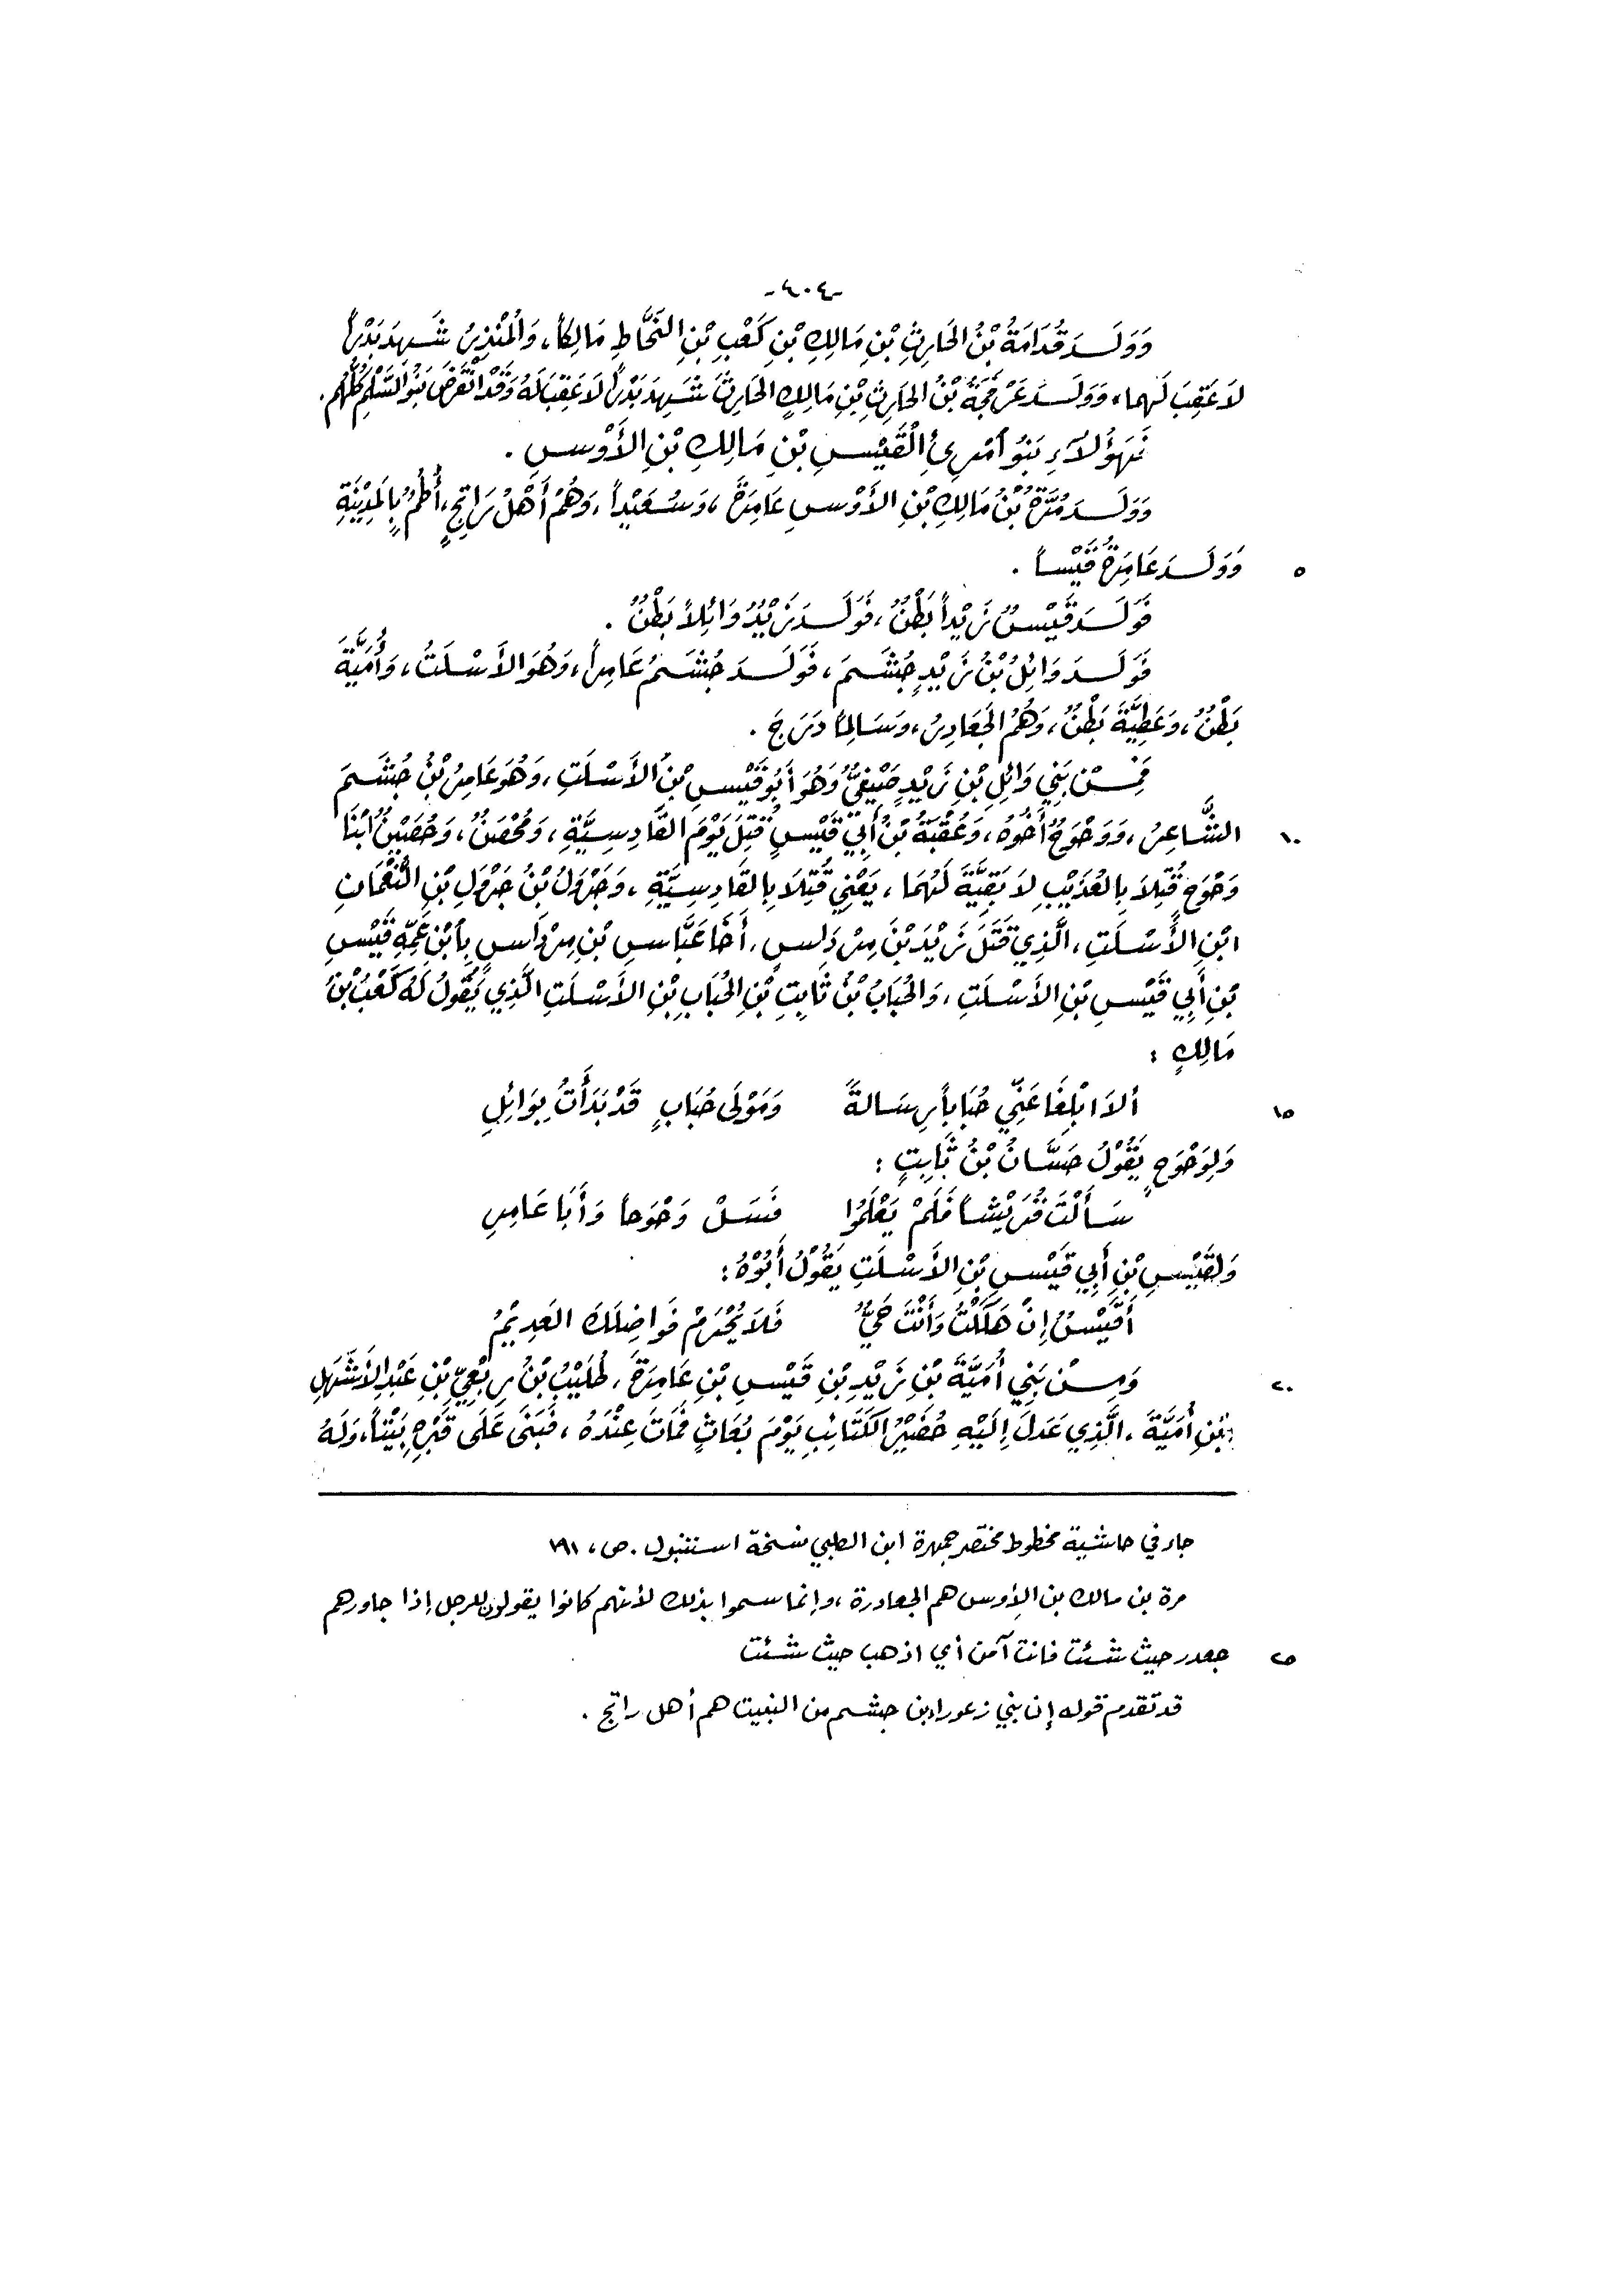 -٤٠٤-
وَوَلَدَ قُدَامَةُ بْنُ الحَارِثِ بْنِ مَالِكِ بْنِ كَعْبِ بْنِ النَّحَّاطِ مَالِكاً، وَالْمُنْذِرَ شَهِدَ بَدْراً
لاَ عَقِبَ لَهما، وَوَلَدَ عَرْفَجَةُ بْنُ الحَارِثِ بْنِ مَالِكٍ الحَارِثَ شَهِدَ بَدْراً لاَ عَقِبَ لَهُ وَقَدْ انْقَرَضَ بَنُو السَّلْمِ كُلُّهُم.
فَهَؤُلاَءِ بَنُو امْرِئِ الْقَيْسِ بْنِ مَالِكِ بْنِ الأَوْسِ .
وَوَلَدَ مُرَّةُ بْنُ مَالِكِ بْنِ الأَوْسِ عَامِرَةَ، وَسُعَيْداً، وَهُمْ أَهْلُ رَاتِجٍ، أُطُمٌ بِالَمدِيْنَةِ
٥ وَوَلَدَ عَامِرَةُ قَيْساً .
فَوَلَدَ قَيْسٌ زَيْداً بَطْنٌ، فَوَلَدَ زَيْدٌ وَائِلاً بَطْنٌ .
فَوَلَدَ وَائِلُ بْنُ زَيْدٍ جُشَمَ، فَوَلَدَ جُشَمُ عَامِراً، وَهُوَ الأَسْلَتُ، وَأُمَيَّةَ
بَطْنٌ، وَعَطِيَّةَ بَطْنٌ، وَهُمُ الجَعَادِرُ، وَسَالِماً دَرَجَ .
فَمِنْ بَنِي وَائِلِ بْنِ زَيْدٍ صَيْفِيٌّ وَهُوَ أَبُو قَيْسِ بْنِ الأَسْلَتِ، وَهُوَ عَامِرُ بْنُ جُشَمَ
١٠ الشَّاعِرُ، وَوَحْوَحٌ أَخُوهُ، وَعُقْبَةُ بْنُ أَبِي قَيْسٍ قُتِلَ يَوْمَ القَادِسِيَّةِ، وَمُحْصَنٌ، وَحُصَيْنٌ ابْنَا
وَحْوَحٍ قُتِلاَ بِالعُذَيْبِ لاَ بَقِيَّةَ لَهُمَا، يَعْنِي قُتِلاَ بِالقَادِسِيَّةِ، وَجَرْوَلُ بْنُ جَرْوَلِ بْنِ النُّعْمَانِ
ابْنِ الأَسْلَتِ، الَّذِي قَتَلَ زَيْدَ بْنَ مِرْدَاسٍ، أَخَا عَبَّاسِ بْنِ مِرْدَاسٍ بِابْنِ عَمِّهِ قَيْسِ
بْنِ أَبِي قَيْسِ بْنِ الأَسْلَتِ، وَالحُبَابُ بْنُ ثَابِتِ بْنِ الحُبَابِ بْنِ الأَسْلَتِ الَّذِي يَقُولُ لَهُ كَعْبُ بْنُ
مَالِكٍ :
١٥ أَلاَ ابْلِغَا عَنِّي حُبَاباً رِسَالةً وَمَوْلَى حُبَابٍ قَدْ بَدَأْتُ بِوَائِلِ
وَلِوَحْوَحٍ يَقُوْلُ حَسَّانُ بْنُ ثَابِتٍ :
سَأَلْتَ قُرَيْشاً فَلَمْ يَعْلَمُوا فَسَلْ وَحْوَحاً وَأَبَا عَامِرِ
وَلِقَيْسِ بْنِ أَبِي قَيْسِ بْنِ الأَسْلَتِ يَقُوْلُ أَبُوْهُ :
أَقَيْسُ إِنْ هَلَكْتُ وَأَنْتَ حَيٌّ فَلاَ يُحْرَمْ فَوَاضِلَكَ العَدِيْمُ
٢٠ وَمِنْ بَنِي أُمَيَّةَ بْنِ زَيْدِ بْنِ قَيْسِ بْنِ عَامِرَةَ، طُلَيْبُ بْنُ رِبْعِيِّ بْنِ عَبْدِ الأَشْهَلِ
بْنِ أُمَيَّةَ، الَّذِي عَدَلَ إِلَيْهِ حُضَيْرُ الكَتَائِبِ يَوْمَ بُعَاثٍ فَمَاتَ عِنْدَهُ، فَبَنَى عَلَى قَبْرِهِ بَيْتاً، وَلَهُ
جاء في حاشية مخطوط مختصر جمهرة ابن الكلبي نسخة استنبول .ص، ١٩١
مرة بن مالك بن الأوس هم الجعادرة ، وإنما سموا بذلك لأنهم كانوا يقولون للرجل إذا جاورهم
٢٥ جعدر حيث شئت فانت آمن أي اذهب حيث شئت
قد تقدم قوله إن بني زعوراء بن جشم من النبيت هم أهل راتج .